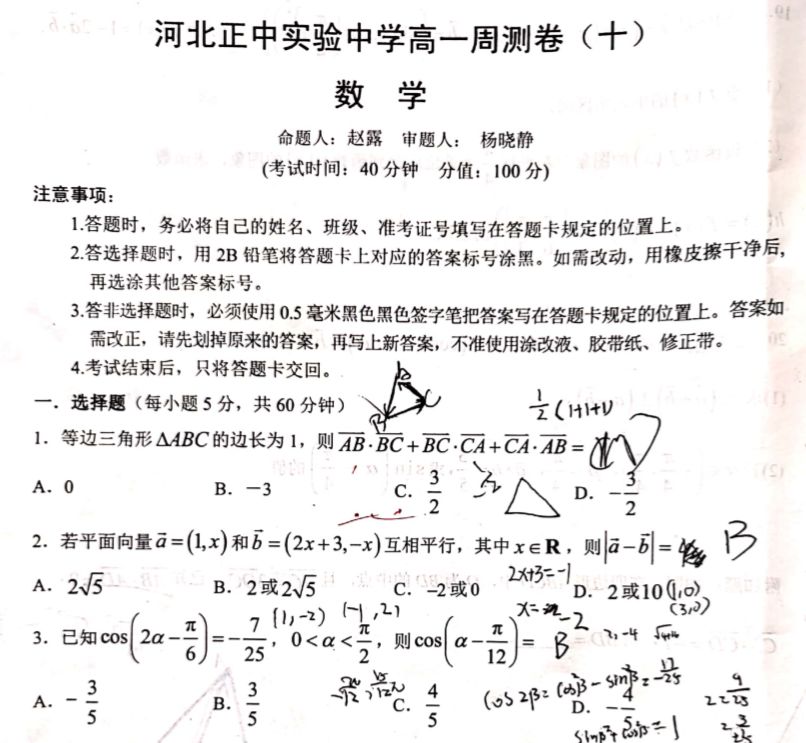 河北正中实验中学高一周测卷（十）
数 学
命题人：赵露 审题人： 杨晓静
(考试时间：40 分钟 分值：100 分)
注意事项：
1.答题时，务必将自己的姓名、班级、准考证号填写在答题卡规定的位置上。
2.答选择题时，用 2B 铅笔将答题卡上对应的答案标号涂黑。如需改动，用橡皮擦干净后,
再选涂其他答案标号。
3.答非选择题时，必须使用 0.5 毫米黑色黑色签字笔把答案写在答题卡规定的位置上。答案如
需改正，请先划掉原来的答案，再写上新答案，不准使用涂改液、胶带纸、修正带。
4.考试结束后，只将答题卡交回。
一．选择题（每小题 5 分，共 60 分钟）
1/2 (1+1+1)
1．等边三角形 ΔABC 的边长为 1，则 AB·BC + BC·CA + CA·AB =
A．0 B．−3 C．3/2 D．−3/2
2．若平面向量 a = (1, x) 和 b = (2x+3, −x) 互相平行，其中 x∈R，则|a − b| = B
A．2√5 B．2 或 2√5 C．−2 或 0 D．2 或 10
2x+3=-1
(1,0)
(3,0)
(1,-2) (-1,2)
x= -2
3．已知 cos(2α − π/6) = −7/25，0 < α < π/2，则 cos(α − π/12) = B
2,-4
A．−3/5 B．3/5 C．4/5 D．−4/5